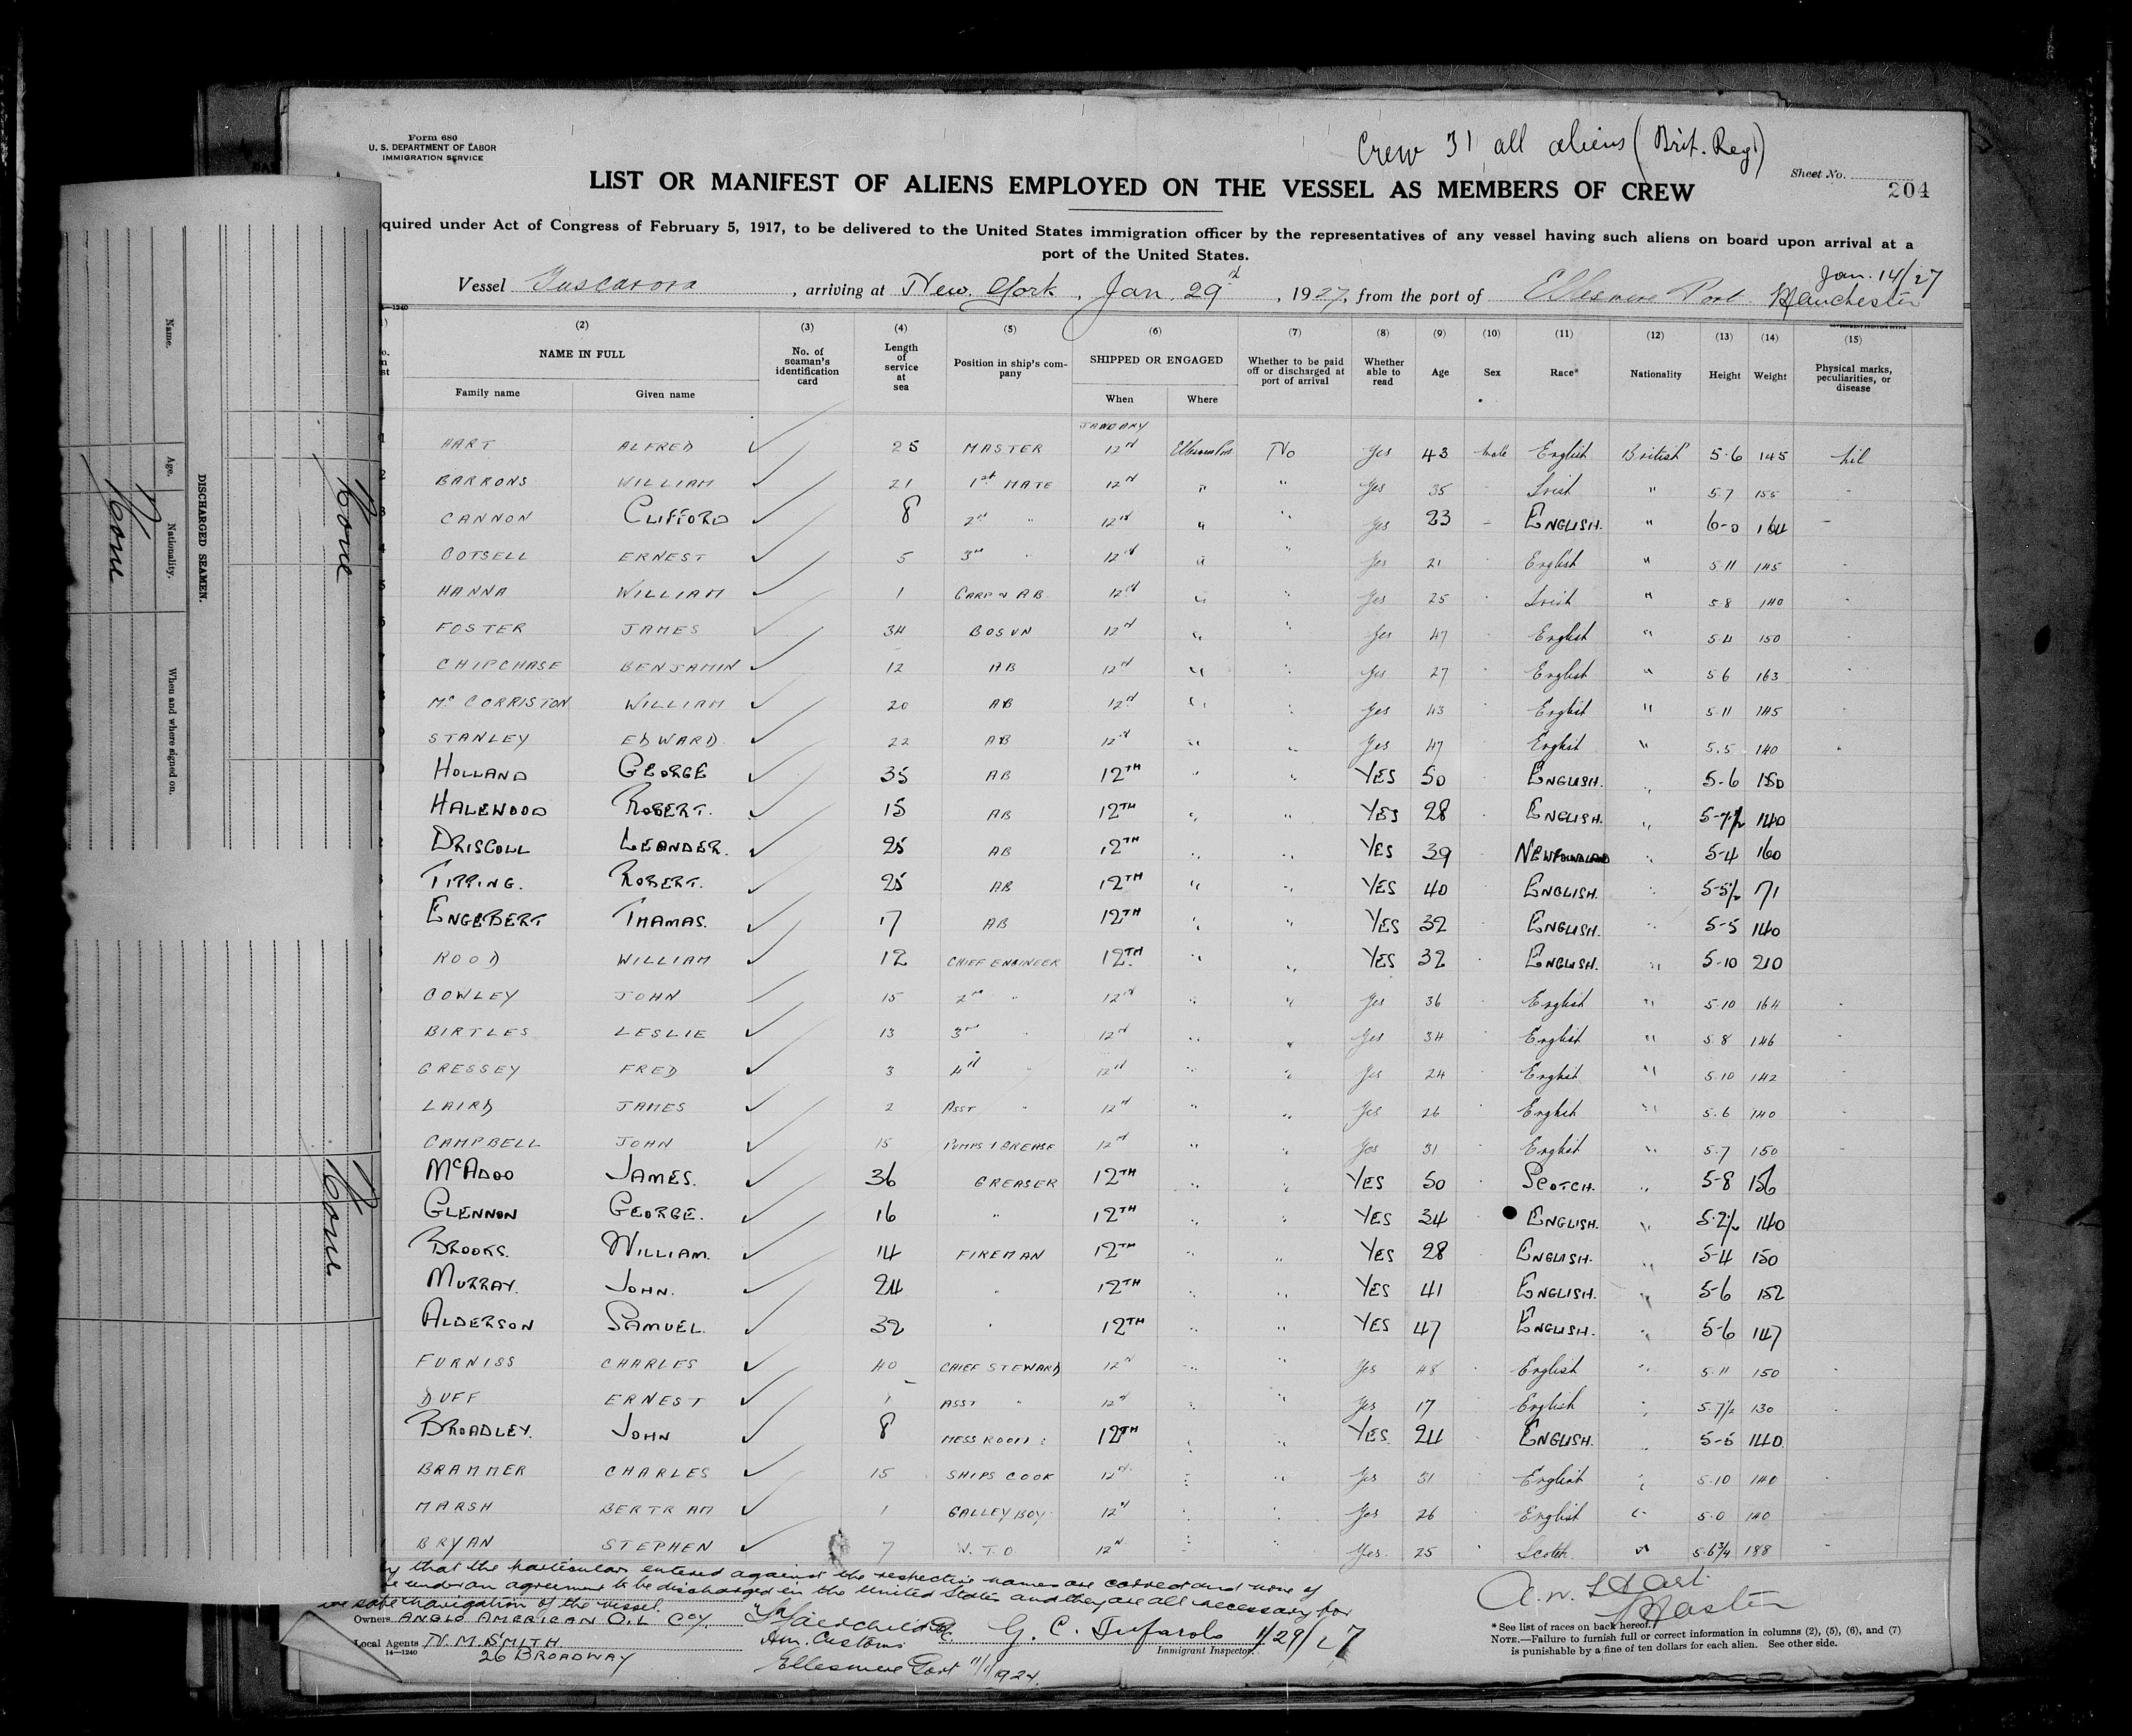 Form 680
U. S. DEPARTMENT OF LABOR
IMMIGRATION SERVICE
Crew 31 all aliens (Brit. Reg)
Sheet No.
204
LIST OR MANIFEST OF ALIENS EMPLOYED ON THE VESSEL AS MEMBERS OF CREW
quired under Act of Congress of February 5, 1917, to be delivered to the United States immigration officer by the representatives of any vessel having such aliens on board upon arrival at a
port of the United States.
Jan. 14/27
Vessel Tuscarora, arriving at New York, Jan. 29, 1927, from the port of Ellesmere Port Manchester
(2) (3) (4) (5) (6) (7) (8) (9) (10) (11) (12) (13) (14) (15)
NAME IN FULL No. of seaman's identification card Length of service at sea Position in ship's company SHIPPED OR ENGAGED Whether to be paid off or discharged at port of arrival Whether able to read Age Sex Race* Nationality Height Weight Physical marks, peculiarities, or disease
Family name Given name When Where
JANUARY
HART ALFRED 25 MASTER 12 No Yes 43 Male English British 5·6 145 Nil
BARRONS WILLIAM 21 1st MATE 12 " " Yes 35 Irish " 5·7 155
CANNON CLIFFORD 8 2nd " 12 " " Yes 23 ENGLISH. " 6-0 164
COTSELL ERNEST 5 3rd " 12 " " Yes 21 English " 5·11 145
HANNA WILLIAM 1 CARPN AB 12 " " Yes 25 Irish " 5·8 140
FOSTER JAMES 34 BOSUN 12 " " Yes 47 English " 5·4 150
CHIPCHASE BENJAMIN 12 AB 12 " " Yes 27 English " 5·6 163
McCORRISTON WILLIAM 20 AB 12 " " Yes 43 English " 5·11 145
STANLEY EDWARD 22 AB 12 " " Yes 47 English " 5·5 140
HOLLAND GEORGE 35 AB 12TH " " YES 50 ENGLISH. " 5-6 150
HALEWOOD ROBERT. 15 AB 12TH " " YES 28 ENGLISH. " 5-7½ 140
DRISCOLL LEANDER. 25 AB 12TH " " YES 39 NEWFOUNDLAND " 5-4 160
TIPPING. ROBERT. 25 AB 12TH " " YES 40 ENGLISH. " 5-5½ 171
ENGEBERT THAMAS. 17 AB 12TH " " YES 32 ENGLISH. " 5-5 140
ROOD WILLIAM 12 CHIEF ENGINEER 12TH " " YES 32 ENGLISH. " 5-10 210
COWLEY JOHN 15 2nd " 12 " " Yes 36 English " 5·10 164
BIRTLES LESLIE 13 3rd " 12 " " Yes 34 English " 5·8 146
GRESSEY FRED 3 4th " 12 " " Yes 24 English " 5·10 142
LAIRD JAMES 2 ASST " 12 " " Yes 26 English " 5·6 140
CAMPBELL JOHN 15 12 " " Yes 31 English " 5·7 150
McADOO JAMES. 36 GREASER 12TH " " YES 50 SCOTCH. " 5-8 156
GLENNON GEORGE. 16 " 12TH " " YES 34 ENGLISH. " 5·2½ 140
BROOKS. WILLIAM. 14 FIREMAN 12TH " " YES 28 ENGLISH. " 5-4 150
MURRAY. JOHN. 24 " 12TH " " YES 41 ENGLISH. " 5-6 152
ALDERSON SAMUEL. 32 " 12TH " " YES 47 ENGLISH. " 5-6 147
FURNISS CHARLES 40 CHIEF STEWARD 12 " " Yes 48 English " 5·11 150
DUFF ERNEST 1 ASST " 12 " " Yes 17 English " 5·7½ 130
BROADLEY. JOHN 8 MESS ROOM " 12TH " " YES 24 ENGLISH. " 5-5 140
BRAMMER CHARLES 15 SHIPS COOK 12 " " Yes 31 English " 5·10 140
MARSH BERTRAM 1 GALLEY BOY 12 " " Yes 26 English " 5·0 140
BRYAN STEPHEN 7 W.T.O. 12 " " Yes. 25 Scotch " 5·6¾ 188
that the particulars entered against the respective names are correct and none of
under an agreement to be discharged in the United States and they are all necessary for
safe navigation of the vessel.
Owners ANGLO AMERICAN OIL Coy.
Local Agents N. M. SMITH.
26 BROADWAY
14—1240
Am. Customs
Ellesmere Port
G. C. Tufarolo 1/29/27
Immigrant Inspector.
A. W. Hart
Master
* See list of races on back hereof.
NOTE.—Failure to furnish full or correct information in columns (2), (5), (6), and (7)
is punishable by a fine of ten dollars for each alien. See other side.
DISCHARGED SEAMEN.
Name. Age. Nationality. When and where signed on.
None
None
None